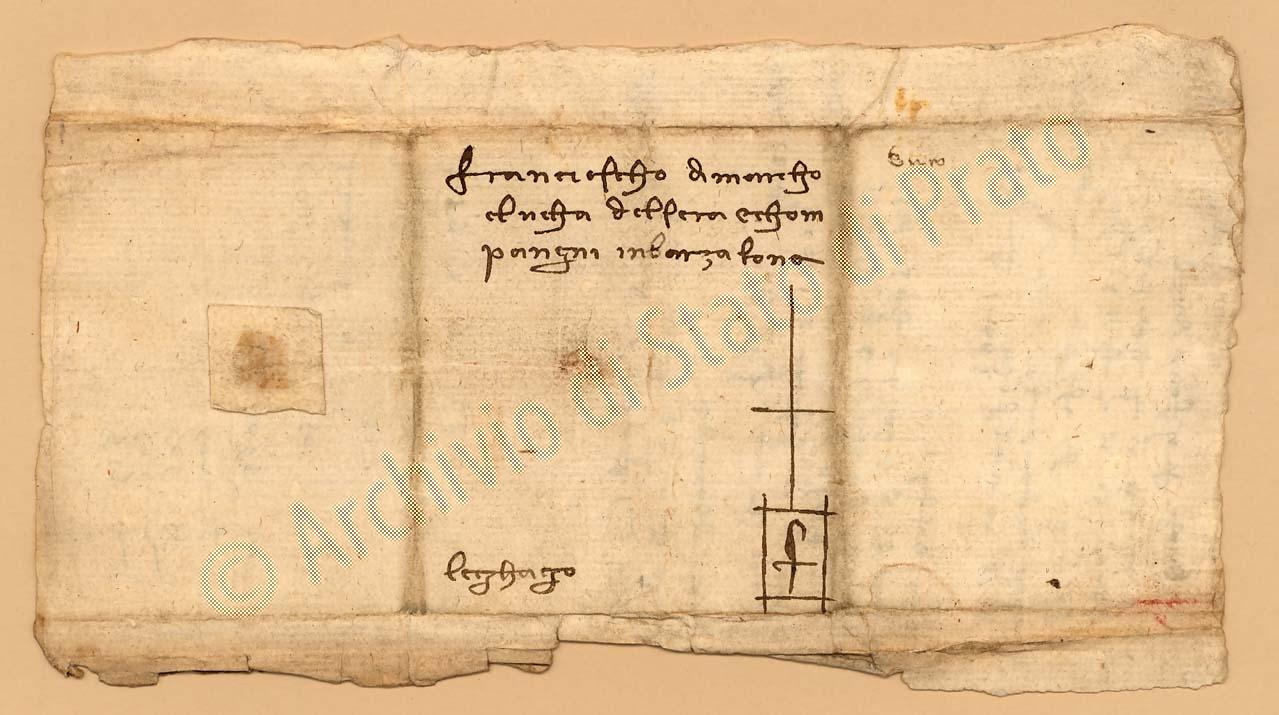 franciescho di marcho
e lucha del sera e chom
pangni in barzalona
f
leghago
© Archivio di Stato di Prato